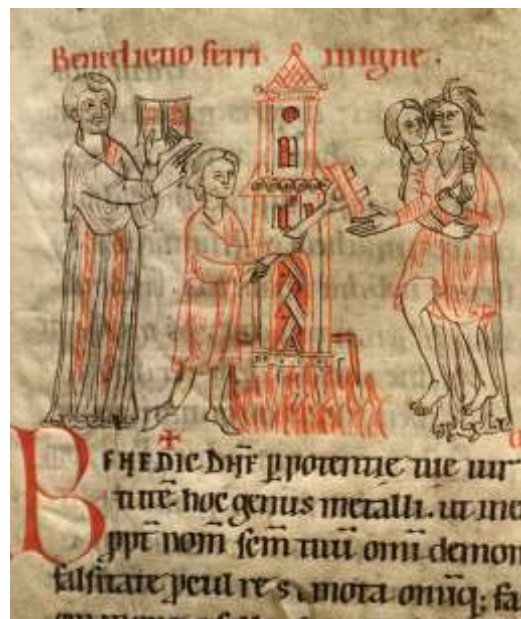 Benedictio ferri in igne.
BENEDIC DN̄E ꝑ potentie tue uir
tutē hoc genus metalli. ut ine
ppt̄ nom̄ scm̄ tuū omī demon
falsitate ꝓcul re mota omīq; fa